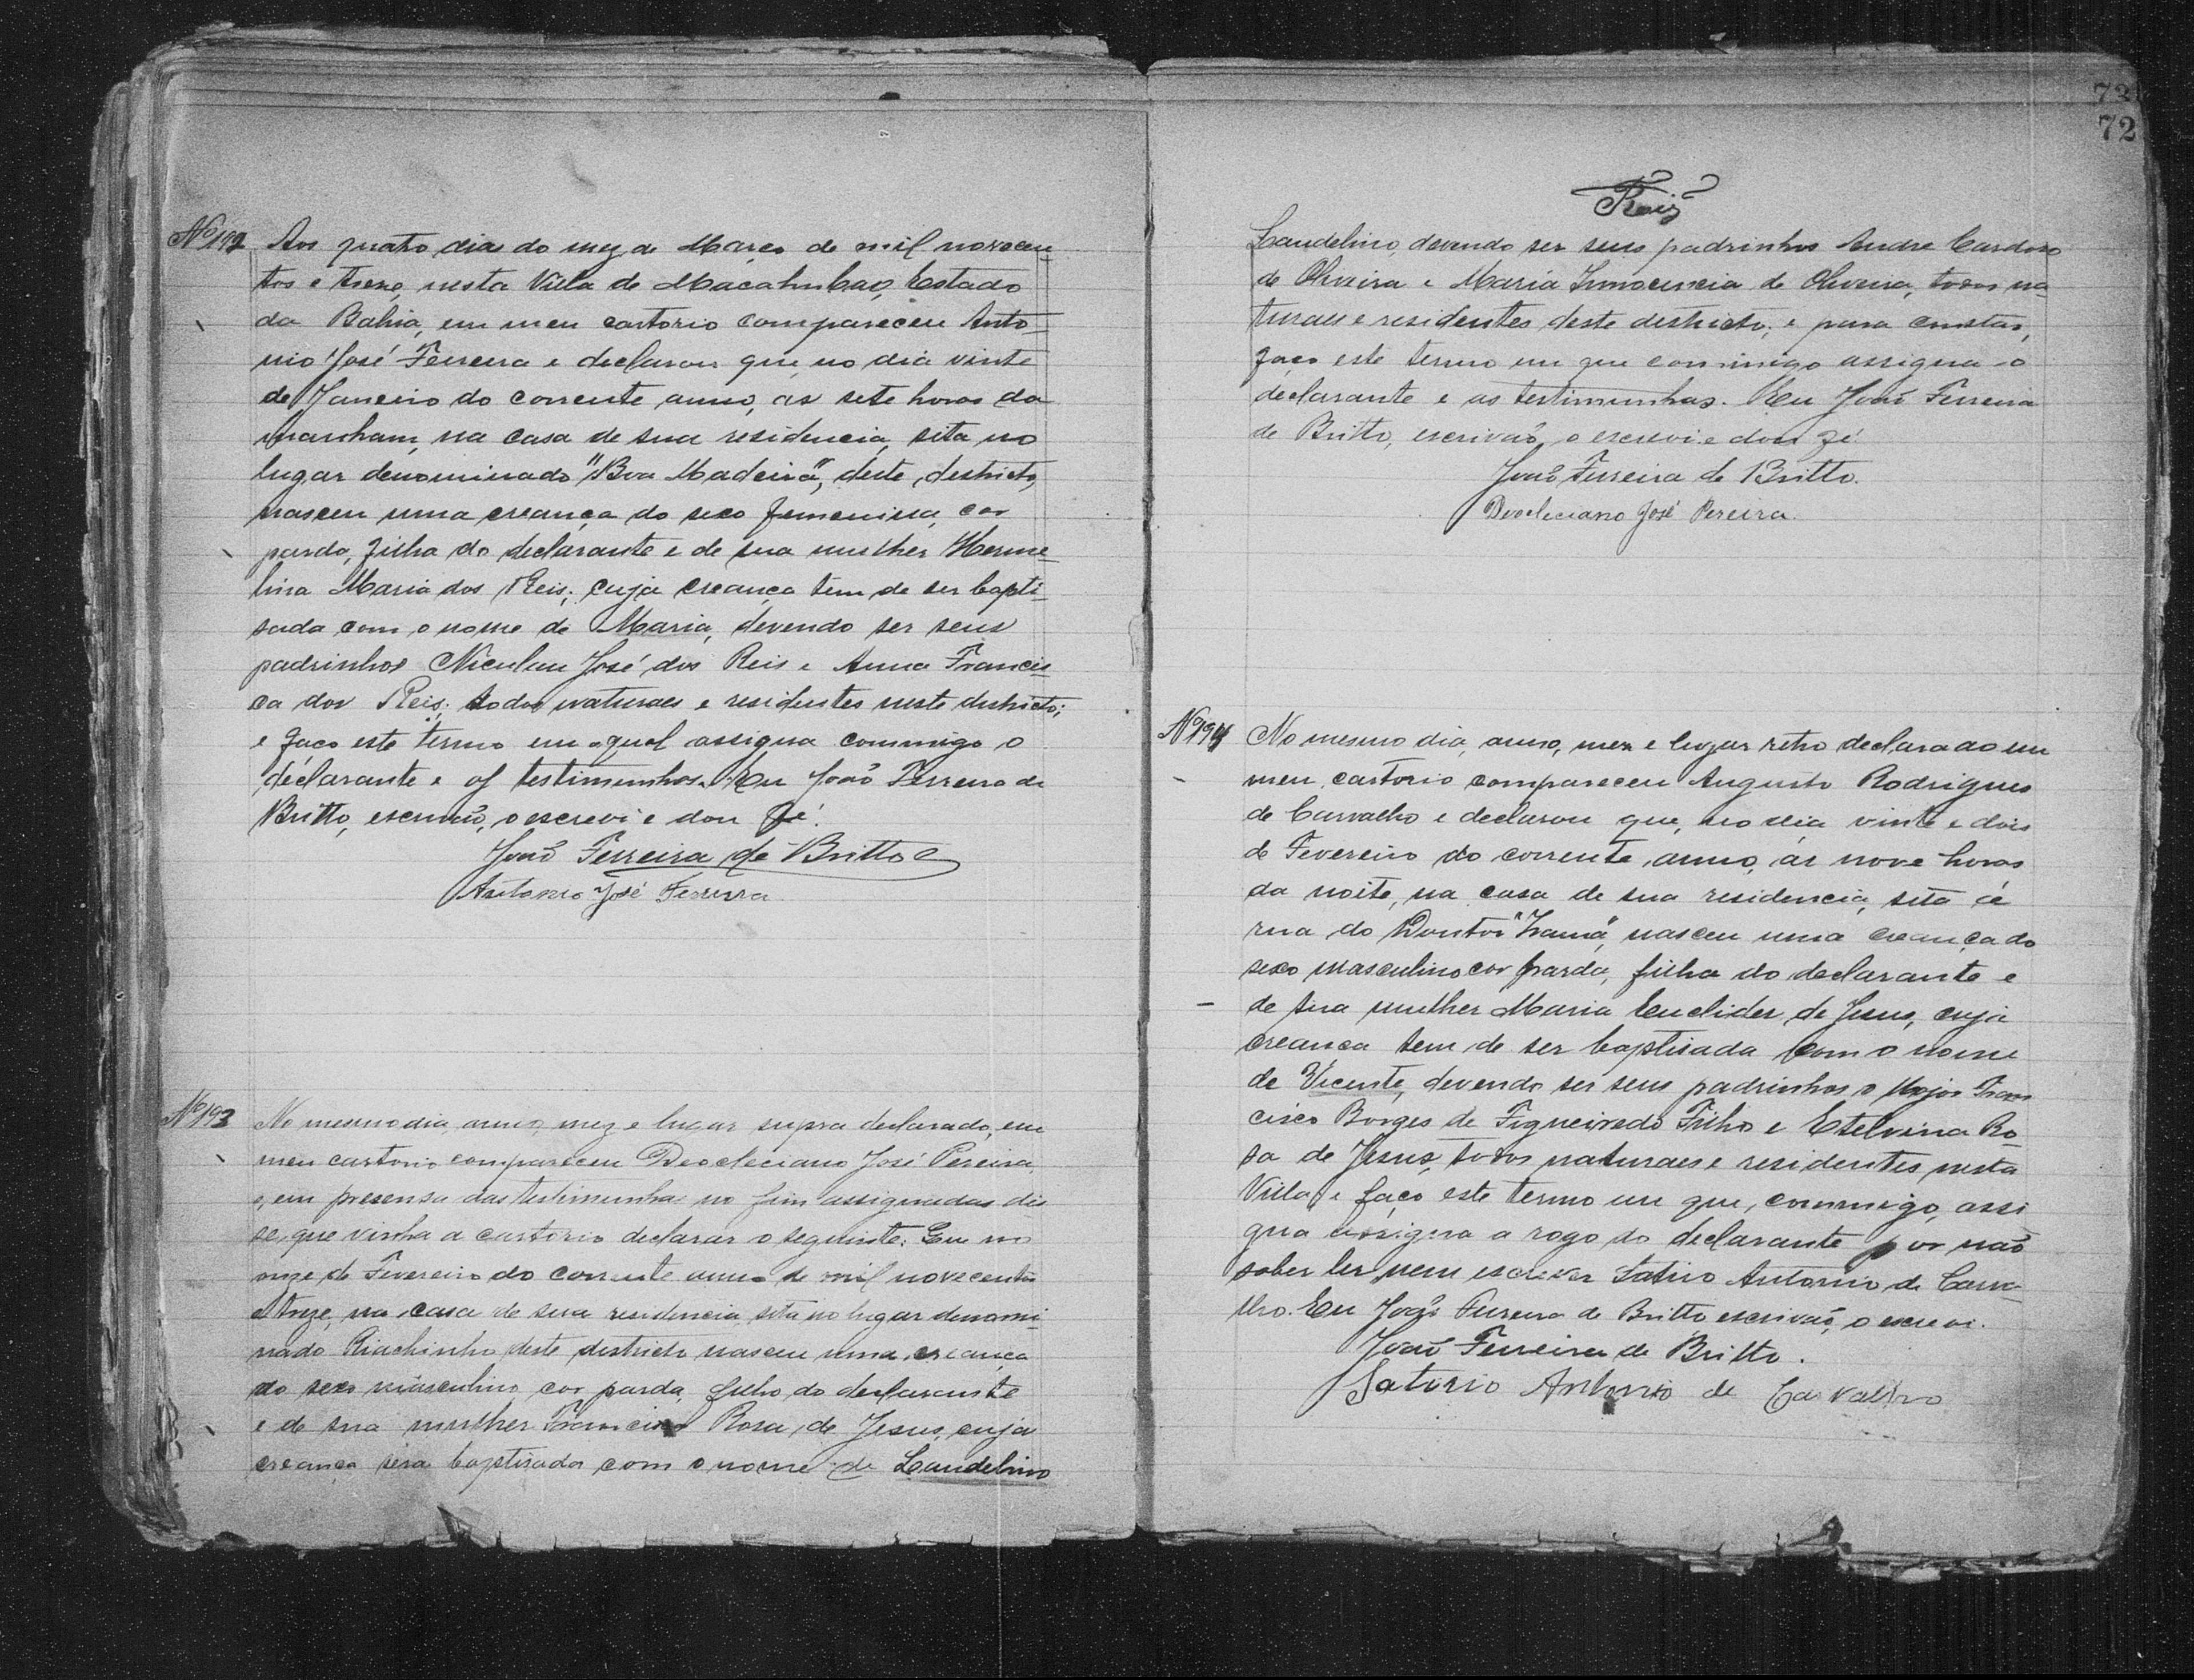 Nº 192 Aos quatro dia do mez de Março de mil novecen
tos e treze, nesta Villa de Macahubas, Estado
da Bahia, em meu cartorio compareceu Anto
nio José Ferreira e declarou que, no dia vinte
de Janeiro do corrente anno, as sete horas da
manham, na casa de sua residencia, sita no
lugar denominado "Boa Madeira", deste districto,
nasceu uma creança do sexo femenina, cor
parda, filha do declarante e de sua mulher Herme-
lina Maria dos Reis; cuja creança tem de ser bapti-
sada com o nome de Maria, devendo ser seus
padrinhos Niculau José dos Reis e Anna Francis-
ca dos Reis; todos naturaes e residentes neste districto;
e faço este termo em o qual assigna commigo o
declarante e as testimunhas. Eu João Ferreira de
Britto, escrivão, o escrevi e dou fé.
João Ferreira de Britto
Antonio José Ferreira
Nº 193 No mesmo dia, anno, mez e lugar supra declarado, em
meu cartorio compareceu Deocleciano José Pereira,
e, em presensa das testimunhas no fim assignadas dis
se, que vinha a cartorio declarar o seguinte: Em no
onze de Fevereiro do corrente anno de mil novecentos
e treze, na casa de sua residencia, sita no lugar denomi-
nado Riachinho, deste districto nasceu uma creança
do sexo masculino, cor parda, filho do declarante
e de sua mulher Francisca Rosa de Jesus, cuja
creança será baptisada com o nome de Laudelino
73
72
Reis
Laudelino, devendo ser seus padrinhos Andre Cardoso
de Oliveira e Maria Innocencia de Oliveira, todos na
turaes e residentes deste destricto; e para constar,
faço este termo em que commigo assigna o
declarante e as testimunhas. Eu João Ferreira
de Britto, escrivão, o escrevi e dou fé
João Ferreira de Britto.
Deocleciano José Pereira.
Nº 194 No mesmo dia, anno, mez e lugar retro declarado em
meu cartorio compareceu Augusto Rodrigues
de Carvalho e declarou que, no dia vinte e dois
de Fevereiro do corrente anno, ás nove horas
da noite, na casa de sua residencia, sita á
rua do Doutor nasceu uma creança do
sexo masculino cor parda, filha do declarante e
de sua mulher Maria Euclides de Jesus, cuja
creança tem de ser baptisada com o nome
de Vicente, devendo ser seus padrinhos o Major Fran
cisco Borges de Figueiredo Filho e Etelvina Ro
sa de Jesus, todos naturaes e residentes nesta
Villa, e faço este termo em que, commigo, assi
gna assigna a rogo do declarante por não
saber ler nem escrever Satirio Antonio de Carva-
lho. Eu João Ferreira de Britto escrivão, o escrevi.
João Ferreira de Britto.
Satirio Antonio de Carvalho